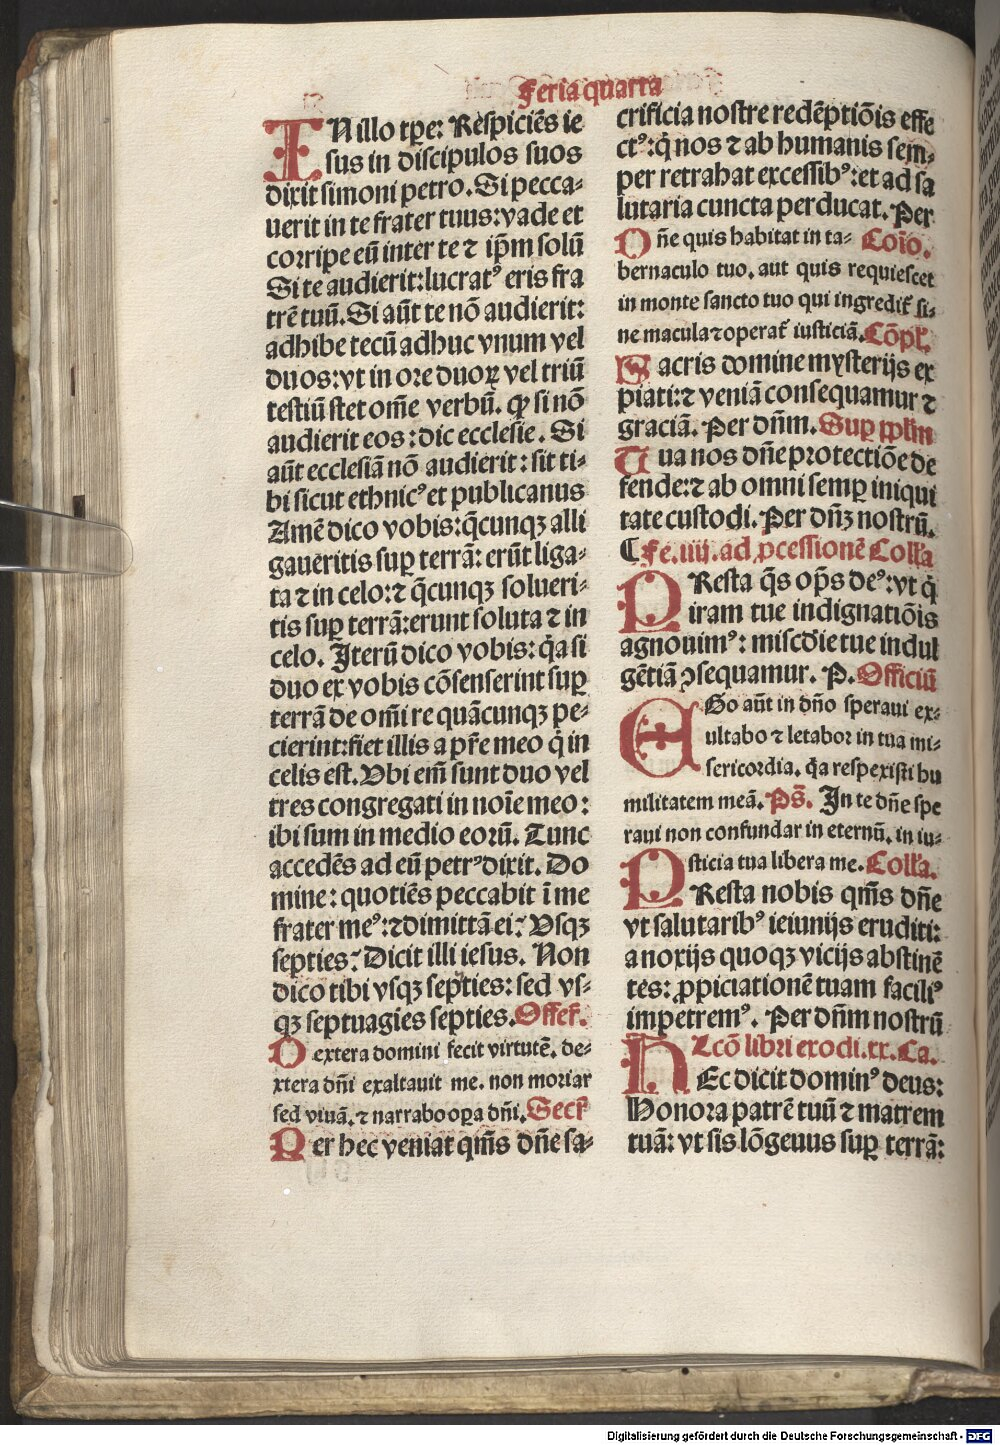 Feria quarta
IN illo tꝑe: Respiciēs ie
sus in discipulos suos
dixit simoni petro. Si pecca-
uerit in te frater tuus: vade et
corripe eū inter te ⁊ ip̄m solū
Si te audierit: lucratꝰ eris fra
trē tuū. Si aūt te nō audierit:
adhibe tecū adhuc vnum vel
duos: vt in ore duoꝝ vel triū
testiū stet om̄e verbū. ꝙ si nō
audierit eos: dic ecclesie. Si
aūt ecclesiā nō audierit: sit ti-
bi sicut ethnicꝰ et publicanus
Amē dico vobis: q̄cunqꝫ alli
gaueritis suꝑ terrā: erūt liga-
ta ⁊ in celo: ⁊ q̄cunqꝫ solueri-
tis suꝑ terrā: erunt soluta ⁊ in
celo. Iterū dico vobis: q̇a si
duo ex vobis cōsenserint suꝑ
terrā de om̄i re quācunqꝫ pe-
cierint: fiet illis a pr̄e meo q̇ in
celis est. Vbi em̄ sunt duo vel
tres congregati in noīe meo:
ibi sum in medio eorū. Tunc
accedēs ad eū petrꝰ dixit. Do
mine: quotiēs peccabit ī me
frater meꝰ: ⁊ dimittā ei? Vsqꝫ
septies? Dicit illi iesus. Non
dico tibi vsqꝫ septies: sed vs-
qꝫ septuagies septies. Offer̄.
Dextera domini fecit virtutē. de-
xtera dn̄i exaltauit me. non moriar
sed viuā. ⁊ narrabo oꝑa dn̄i. Secr̄
Per hec veniat qm̄s dn̄e sa-
crificia nostre redēptiōis effe
ctꝰ: q̇ nos ⁊ ab humanis sem-
per retrahat excessibꝰ: et ad sa
lutaria cuncta perducat. Per
Dn̄e quis habitat in ta- Cōio.
bernaculo tuo. aut quis requiescet
in monte sancto tuo qui ingredit̄ si-
ne macula ⁊ operat̄ iusticiā. Cōpl̄.
Sacris domine mysterijs ex
piati: ⁊ veniā consequamur ⁊
graciā. Per dn̄m. Suꝑ ppl̄m
Tua nos dn̄e protectiōe de
fende: ⁊ ab omni semꝑ iniqui
tate custodi. Per dn̄ꝫ nostrū.
¶ Fe. iiij. ad ꝓcessionē Coll̄a
PResta q̄s op̄s deꝰ: vt q̇
iram tue indignatiōis
agnouimꝰ: misc̄die tue indul
gētiā ꝯsequamur. P. Officiū
EGo aūt in dn̄o speraui ex-
ultabo ⁊ letabor in tua mi-
sericordia. q̇a respexisti hu
militatem meā. Ps̄. In te dn̄e spe
raui non confundar in eternū. in iu-
sticia tua libera me. Coll̄a.
PResta nobis qm̄s dn̄e
vt salutaribꝰ ieiunijs eruditi:
a noxijs quoqꝫ vicijs abstinē
tes: ꝓpiciationē tuam faciliꝰ
impetremꝰ. Per dn̄m nostrū
Lcō libri exodi. xx. Ca.
HEc dicit dominꝰ deus:
Honora patrē tuū ⁊ matrem
tuā: vt sis lōgeuus suꝑ terrā:
Digitalisierung gefördert durch die Deutsche Forschungsgemeinschaft - DFG